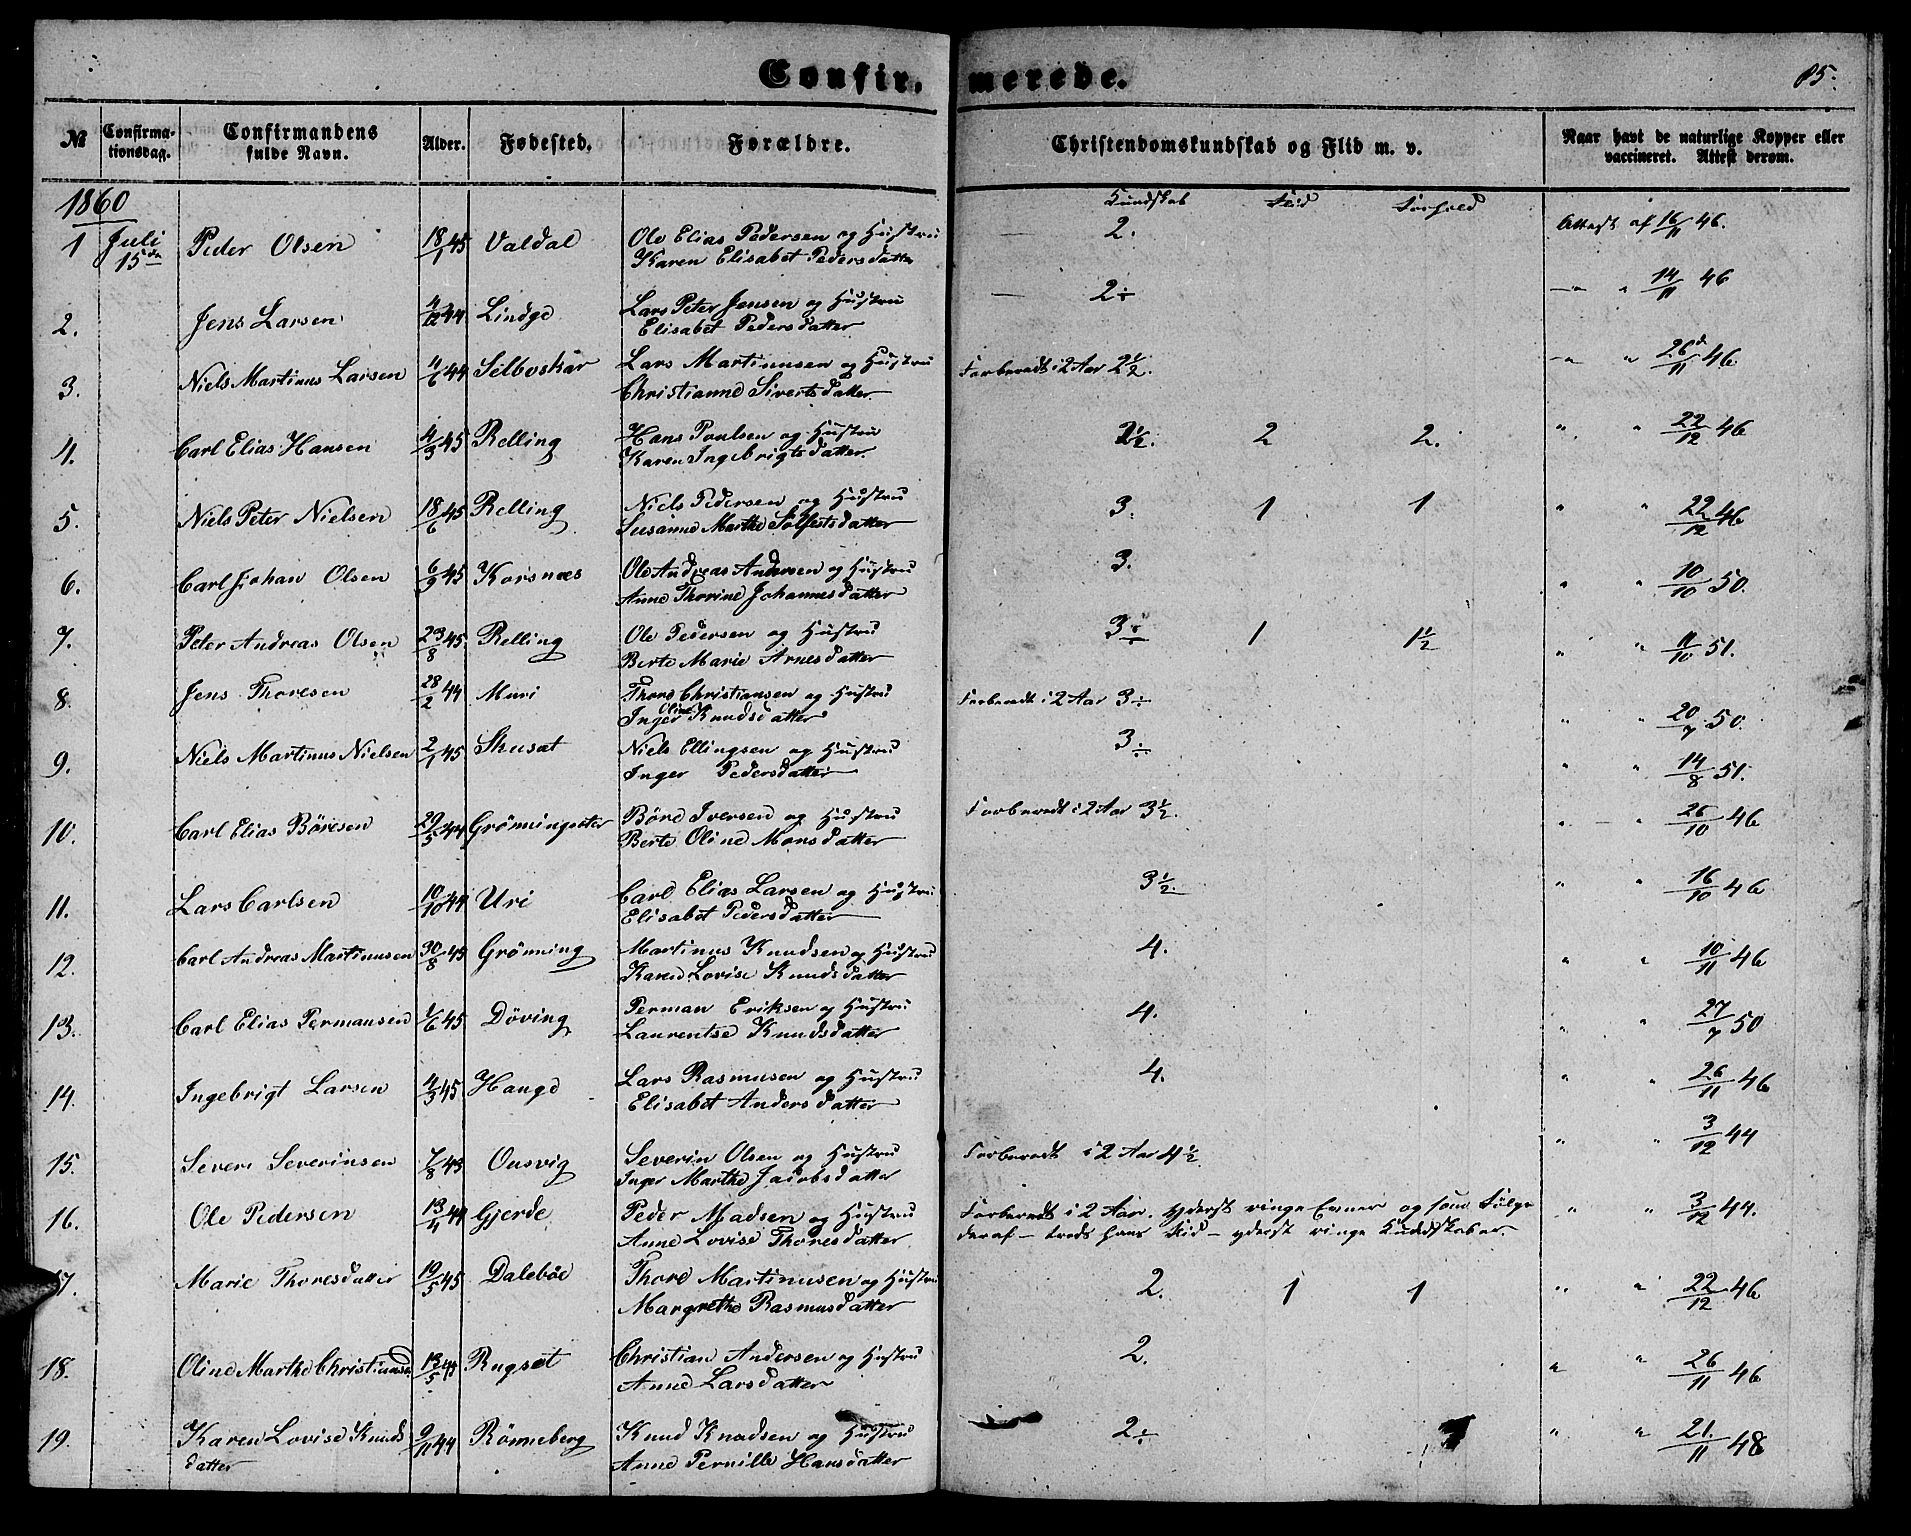 Confir. merede. 85.
№ Confirma- Confirmandens Alder. Fødested. Forældre. Christendomskundskab og Flid m. v. Naar havt de naturlige Kopper eller
tionsdag. fulde Navn. vaccineret. Attest derom.
1860 Kundskab Flid Forhold
1 Juli Peder Olsen 18/1 45 Valdal Ole Elias Pedersen og Hustru — 2. Attest af 16/11 46.
15de Karen Elisabet Pedersdatter
2. Jens Larsen 4/12 44 Lindge Lars Peter Jensen og Hustru — 2÷ —" " 14/11 46
Elisabet Pedersdatter
3. Niels Martinus Larsen 4/6 44 Selboskar Lars Martinussen og Hustru Forberedt i 2 Aar 2½. —" " 26/11 46.
Christianne Sivertsdatter
4. Carl Elias Hansen 4/3 45 Relling Hans Poulsen og Hustru 2½. 2 2. " " 22/12 46
Karen Ingebrigtsdatter.
5. Niels Peter Nielsen 18/6 45 Relling Niels Pedersen og Hustru 3. 1 1 " " 22/12 46
Susanne Marthe Solfestsdatter
6. Carl Johan Olsen 6/9 45 Korsnæs Ole Andreas Andersen og Hustru 3. " " 10/10 50.
Anne Thorine Johannesdatter
7. Peter Andreas Olsen 23/8 45 Relling Ole Pedersen og Hustru 3÷ 1 1½ " " 11/10 51.
Berte Marie Arnesdatter
8. Jens Thoresen 28/2 44 Muri Thore Christiansen og Hustru Forberedt i 2 Aar 3÷ " " 20/7 50.
Inger Oline Knudsdatter
9. Niels Martinus Nielsen 2/1 45 Skusat Niels Ellingsen og Hustru 3÷ " " 14/8 51.
Inger Pedersdatter
10. Carl Elias Böresen 29/5 44 Grönningsæter Böre Iversen og Hustru Forberedt i 2 Aar 3½. " " 26/10 46
Berte Oline Monsdatter
11. Lars Carlsen 10/10 44 Uri Carl Elias Larsen og Hustru 3½. " " 16/10 46
Elisabet Pedersdatter
12. Carl Andreas Martinusen 30/8 45 Grönning Martinus Knudsen og Hustru 4. " " 10/11 46
Karen Lovise Knudsdatter
13. Carl Elias Permansen 1/6 45 Döving Perman Eriksen og Hustru 4. " " 27/7 50
Laurentse Knudsdatter
14. Ingebrigt Larsen 4/3 45 Hauge Lars Rasmusen og Hustru 4. " " 26/11 46
Elisabet Andersdatter
15. Severi Severinsen 7/8 43 Ousvig Severin Olsen og Hustru Forberedt i 2 Aar 4½. " " 3/12 44
Inger Marthe Jacobsdatter
16. Ole Pedersen Gjerde Peder Madsen og Hustru Forberedt i 2 Aar. yderst ringe Evner og som Fölge " " 3/12 44.
Anne Lovise Thoresdatter. deraf – trods hans Flid – yderst ringe Kundskaber.
17. Marie Thoresdatter 19/5 45 Daleböe Thore Martinusen og Hustru 2. 1 1 " " 22/12 46
Margrethe Rasmusdatter
18. Oline Marthe Christiansd 13/5 44 Rugset Christian Andersen og Hustru 2. " " 26/11 46
Anne Larsdatter
19. Karen Lovise Knuds 9/11 44 Rönneberg Knud Knudsen og Hustru 2÷ " " 21/11 48
datter Anne Pernille Hansdatter